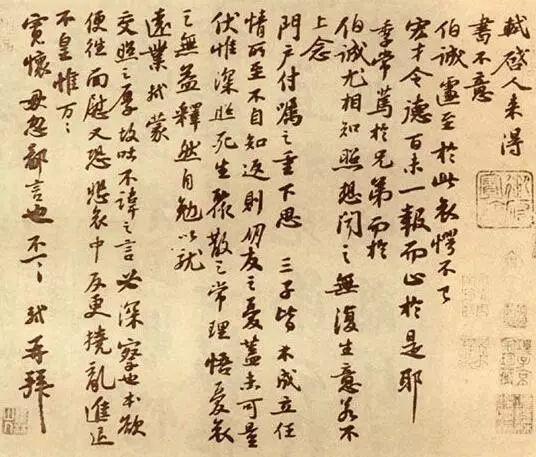 軾啓人來得
書不意
伯誠遽至於此哀愕不已
宏才令德百未一報而止於是耶
季常篤於兄弟而於
伯誠尤相知照想聞之無復生意若不
上念
門戶付囑之重下思 三子皆未成立任
情所至不自知返則朋友之憂蓋未可量
伏惟深照死生聚散之常理悟憂哀
之無益釋然自勉以就
遠業軾蒙
交照之厚故吐不諱之言必深察也本欲
便往面慰又恐悲哀中反更撓亂進退
不皇惟万〻
寬懷毋忽鄙言也不一〻軾再拜